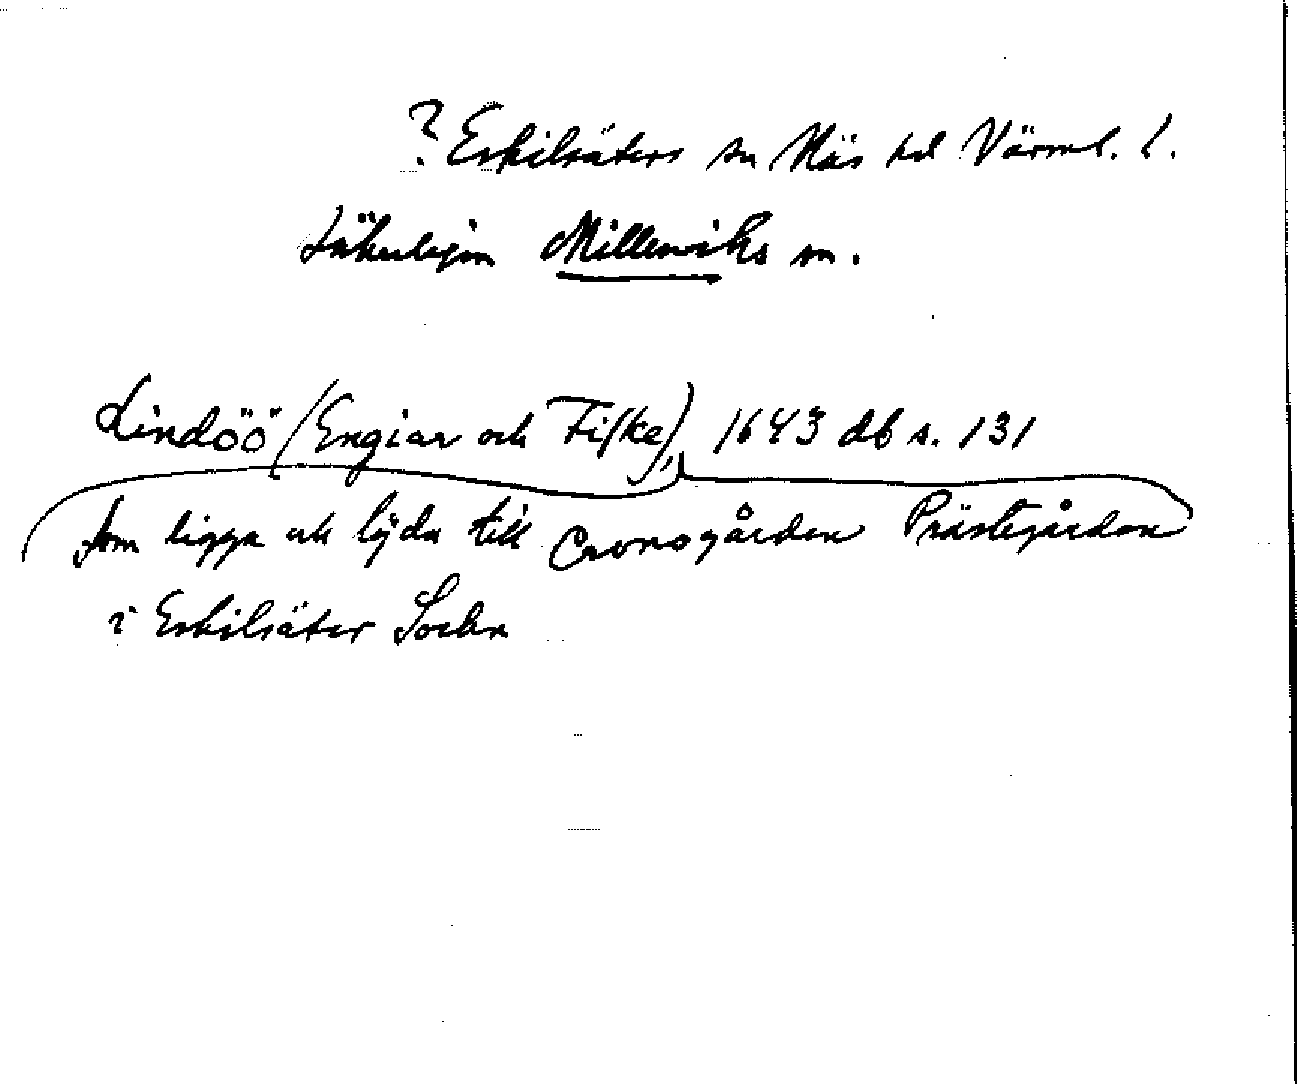 ? Eskilsäters sn Näs hd Värml. l.
Säkerligen Millesviks sn.
Lindöö (Engiar och Fiske), 1643 db s. 131
som ligga och lyda till Cronogården Prästegården
i Eskilsäter Sochn